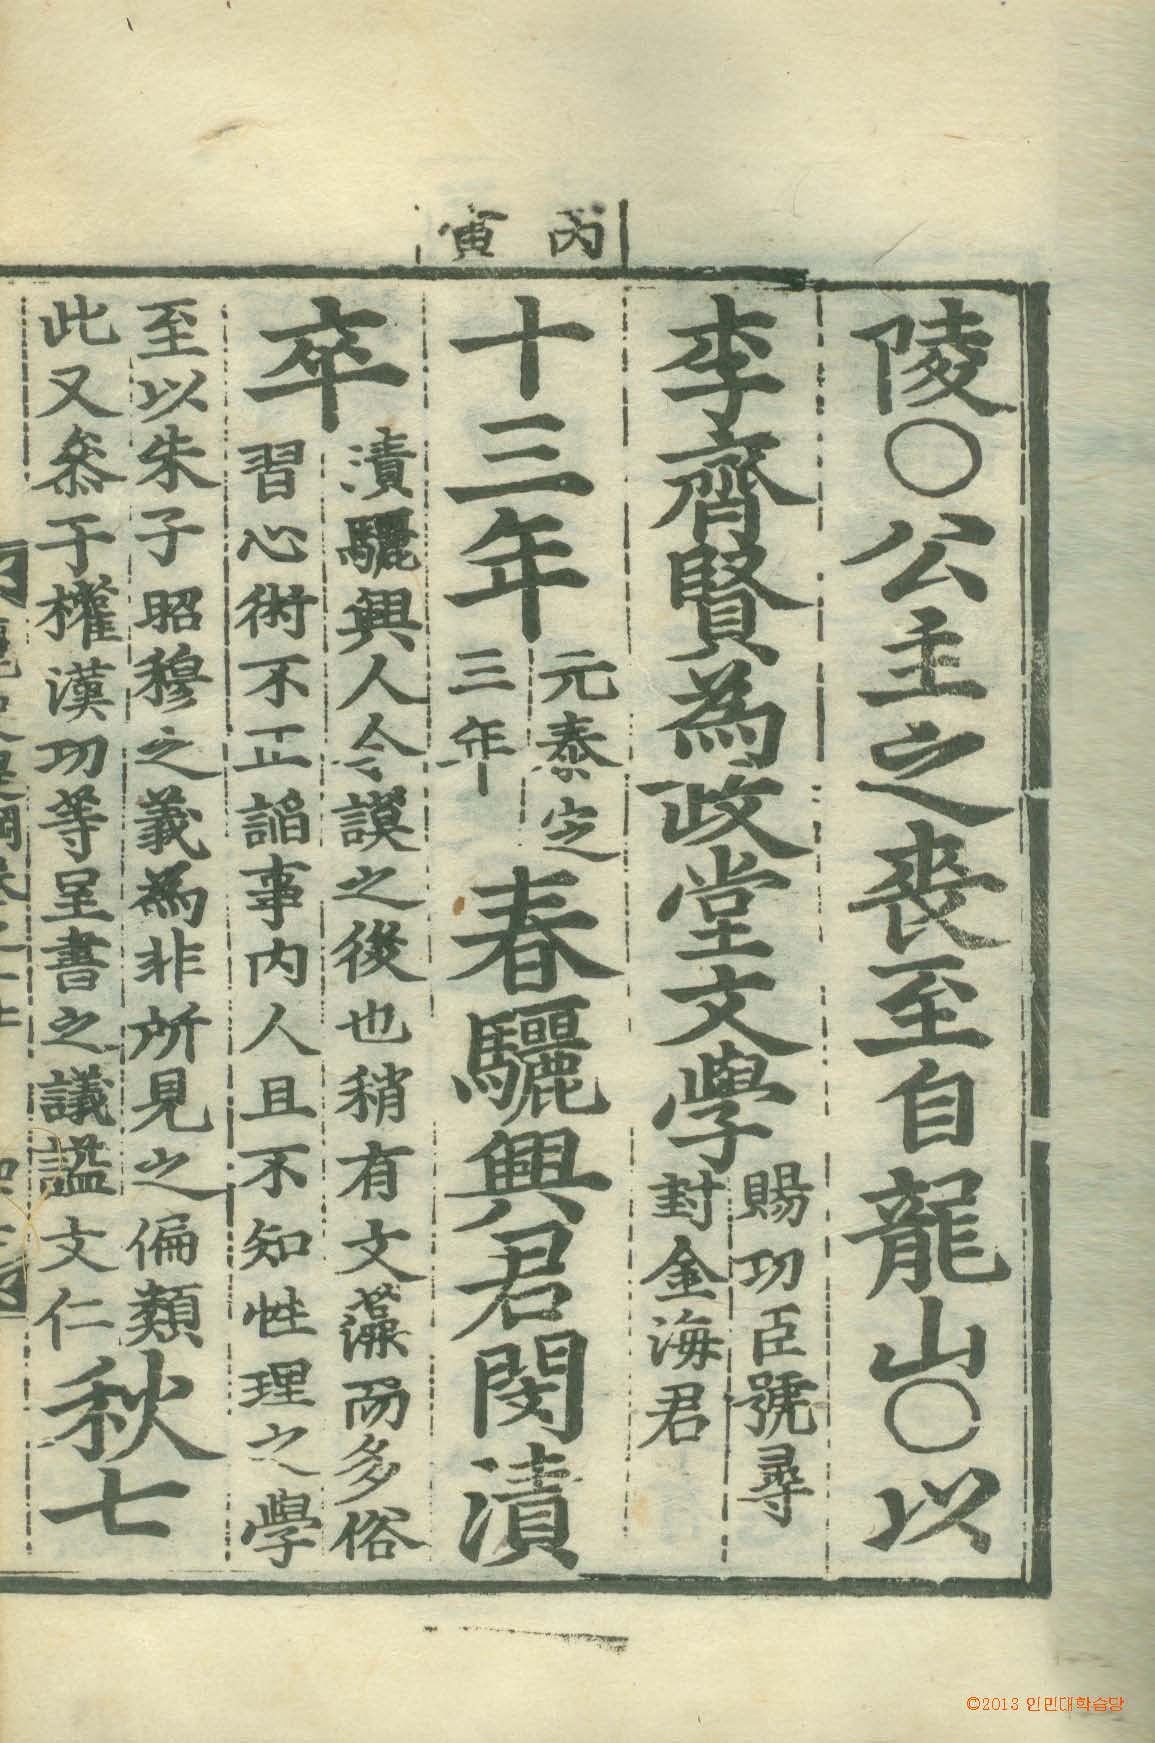 丙寅
陵○公主之喪至自龍山○以
李齊賢為政堂文學
賜功臣號尋
封金海君
十三年
元泰定
三年
春驪興君閔漬
卒
漬驪興人令謨之後也稍有文藻而多俗
習心術不正諂事內人且不知性理之學
至以朱子昭穆之義為非所見之偏類
此又叅于權漢功等呈書之議謚文仁
秋七
©2013 인민대학습당